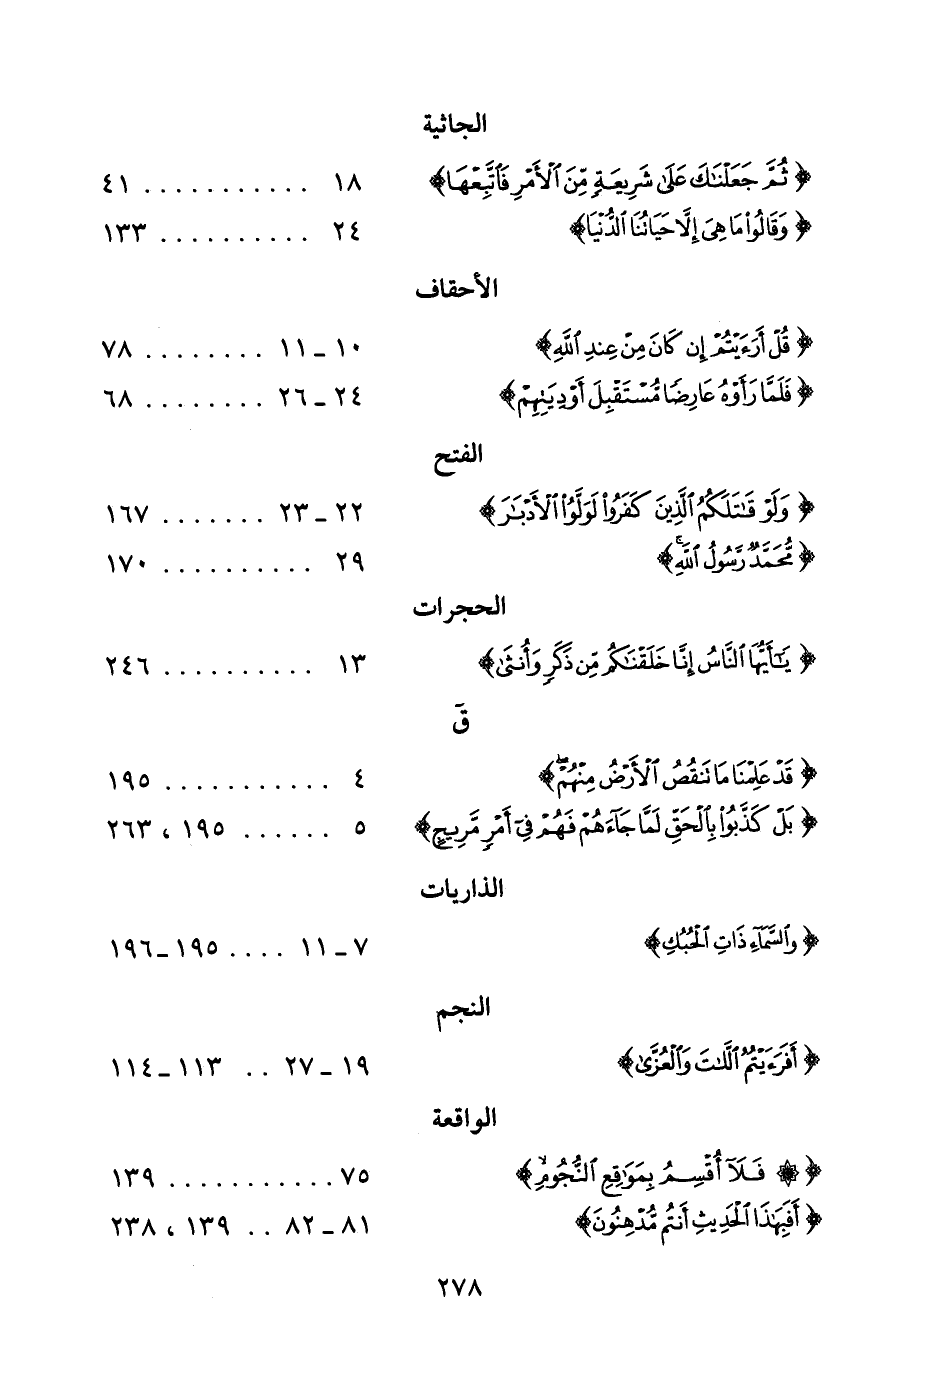 الجاثية
﴿ ثُمَّ جَعَلْنَٰكَ عَلَىٰ شَرِيعَةٍ مِّنَ ٱلْأَمْرِ فَٱتَّبِعْهَا﴾ ١٨ . . . . . . . . . . . ٤١
﴿ وَقَالُوا۟ مَا هِىَ إِلَّا حَيَاتُنَا ٱلدُّنْيَا﴾ ٢٤ . . . . . . . . . . ١٣٣
الأحقاف
﴿ قُلْ أَرَءَيْتُمْ إِن كَانَ مِنْ عِندِ ٱللَّهِ﴾ ١٠ ـ ١١ . . . . . . . . ٧٨
﴿ فَلَمَّا رَأَوْهُ عَارِضًا مُّسْتَقْبِلَ أَوْدِيَتِهِمْ﴾ ٢٤ ـ ٢٦ . . . . . . . . ٦٨
الفتح
﴿ وَلَوْ قَٰتَلَكُمُ ٱلَّذِينَ كَفَرُوا۟ لَوَلَّوُا۟ ٱلْأَدْبَٰرَ﴾ ٢٢ ـ ٢٣ . . . . . . . ١٦٧
﴿ مُّحَمَّدٌ رَّسُولُ ٱللَّهِ ۚ﴾ ٢٩ . . . . . . . . . . ١٧٠
الحجرات
﴿ يَٰٓأَيُّهَا ٱلنَّاسُ إِنَّا خَلَقْنَٰكُم مِّن ذَكَرٍ وَأُنثَىٰ﴾ ١٣ . . . . . . . . . . ٢٤٦
قٓ
﴿ قَدْ عَلِمْنَا مَا تَنقُصُ ٱلْأَرْضُ مِنْهُمْ ۖ﴾ ٤ . . . . . . . . . . . ١٩٥
﴿ بَلْ كَذَّبُوا۟ بِٱلْحَقِّ لَمَّا جَآءَهُمْ فَهُمْ فِىٓ أَمْرٍ مَّرِيجٍ﴾ ٥ . . . . . . ١٩٥ ، ٢٦٣
الذاريات
﴿ وَٱلسَّمَآءِ ذَاتِ ٱلْحُبُكِ﴾ ٧ ـ ١١ . . . . ١٩٥ ـ ١٩٦
النجم
﴿ أَفَرَءَيْتُمُ ٱللَّٰتَ وَٱلْعُزَّىٰ﴾ ١٩ ـ ٢٧ . . ١١٣ ـ ١١٤
الواقعة
﴿ ۞ فَلَآ أُقْسِمُ بِمَوَٰقِعِ ٱلنُّجُومِ ۙ﴾ ٧٥ . . . . . . . . . . . ١٣٩
﴿ أَفَبِهَٰذَا ٱلْحَدِيثِ أَنتُم مُّدْهِنُونَ﴾ ٨١ ـ ٨٢ . . ١٣٩ ، ٢٣٨
٢٧٨